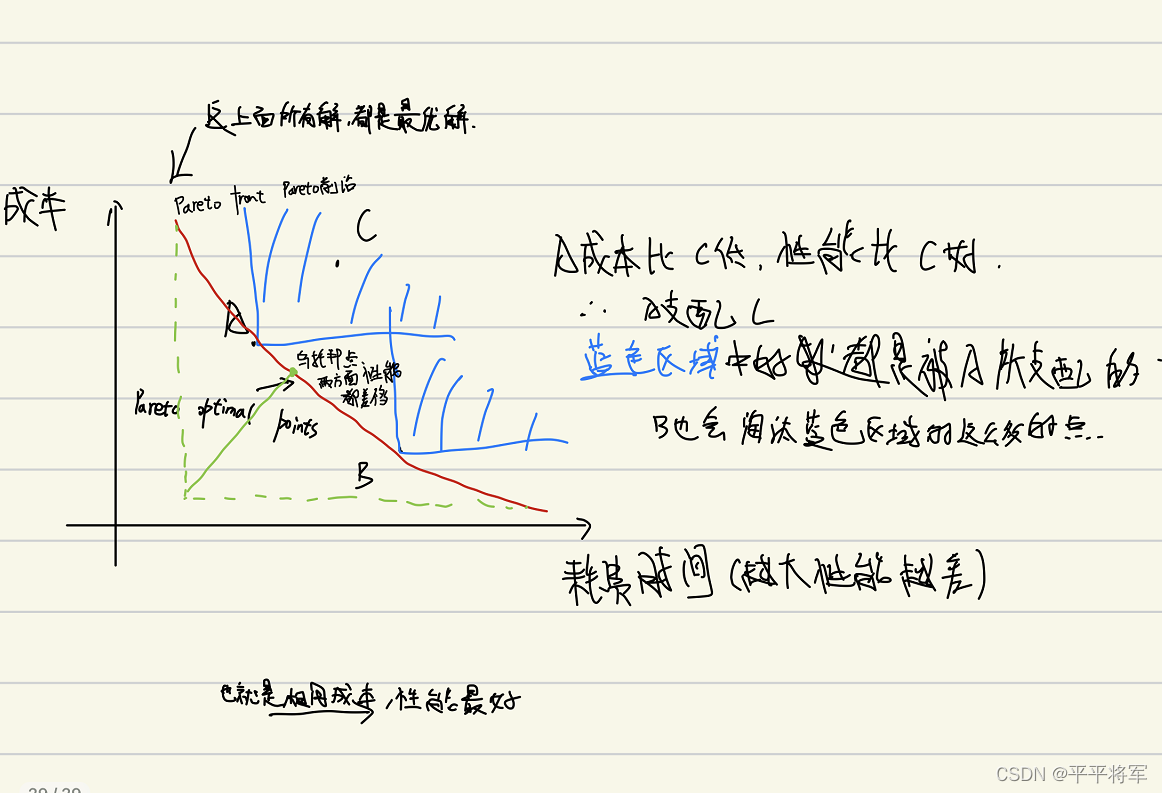 这上面所有解,都是最优解.
Pareto front Pareto前沿
成本
C
A成本比C低,性能比C好.
∴ A支配C
A
蓝色区域中的点都是被A所支配的
两方面性能
都差得
Pareto optimal points
B也会淘汰蓝色区域的这么多的点...
B
耗费时间(越大性能越差)
也就是相同成本,性能最好
CSDN @平平将军